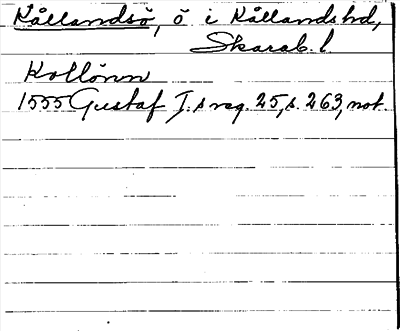 Kållandsö, ö i Kållandshd,
Skarab. l
Kollönn
1555 Gustaf I:s reg. 25, s. 263, not.